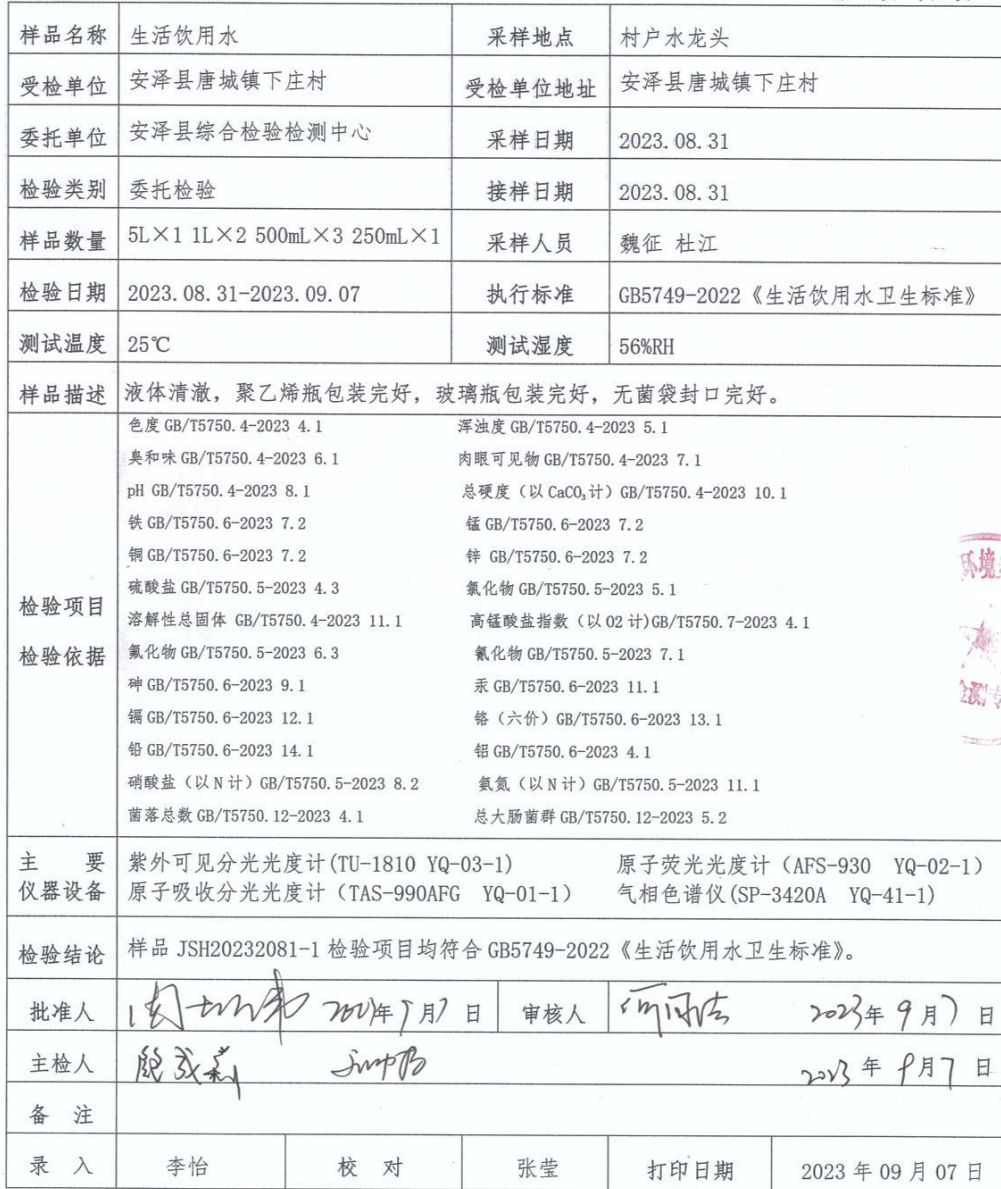 样品名称 生活饮用水 采样地点 村户水龙头
受检单位 安泽县唐城镇下庄村 受检单位地址 安泽县唐城镇下庄村
委托单位 安泽县综合检验检测中心 采样日期 2023.08.31
检验类别 委托检验 接样日期 2023.08.31
样品数量 5L×1 1L×2 500mL×3 250mL×1 采样人员 魏征 杜江
检验日期 2023.08.31-2023.09.07 执行标准 GB5749-2022《生活饮用水卫生标准》
测试温度 25℃ 测试湿度 56%RH
样品描述 液体清澈，聚乙烯瓶包装完好，玻璃瓶包装完好，无菌袋封口完好。
色度 GB/T5750.4-2023 4.1 浑浊度 GB/T5750.4-2023 5.1
臭和味 GB/T5750.4-2023 6.1 肉眼可见物 GB/T5750.4-2023 7.1
pH GB/T5750.4-2023 8.1 总硬度（以 CaCO₃计）GB/T5750.4-2023 10.1
铁 GB/T5750.6-2023 7.2 锰 GB/T5750.6-2023 7.2
铜 GB/T5750.6-2023 7.2 锌 GB/T5750.6-2023 7.2
硫酸盐 GB/T5750.5-2023 4.3 氯化物 GB/T5750.5-2023 5.1
检验项目
溶解性总固体 GB/T5750.4-2023 11.1 高锰酸盐指数（以 O2 计)GB/T5750.7-2023 4.1
检验依据
氟化物 GB/T5750.5-2023 6.3 氰化物 GB/T5750.5-2023 7.1
砷 GB/T5750.6-2023 9.1 汞 GB/T5750.6-2023 11.1
镉 GB/T5750.6-2023 12.1 铬（六价）GB/T5750.6-2023 13.1
铅 GB/T5750.6-2023 14.1 铝 GB/T5750.6-2023 4.1
硝酸盐（以 N 计）GB/T5750.5-2023 8.2 氨氮（以 N 计）GB/T5750.5-2023 11.1
菌落总数 GB/T5750.12-2023 4.1 总大肠菌群 GB/T5750.12-2023 5.2
环境
检测专
主 要 紫外可见分光光度计(TU-1810 YQ-03-1) 原子荧光光度计（AFS-930 YQ-02-1）
仪器设备 原子吸收分光光度计（TAS-990AFG YQ-01-1） 气相色谱仪(SP-3420A YQ-41-1)
检验结论 样品 JSH20232081-1 检验项目均符合 GB5749-2022《生活饮用水卫生标准》。
批准人 年 9 月 7 日 审核人 2023年 9 月 7 日
主检人 2023 年 9 月 7 日
备 注
录 入 李怡 校 对 张莹 打印日期 2023 年 09 月 07 日